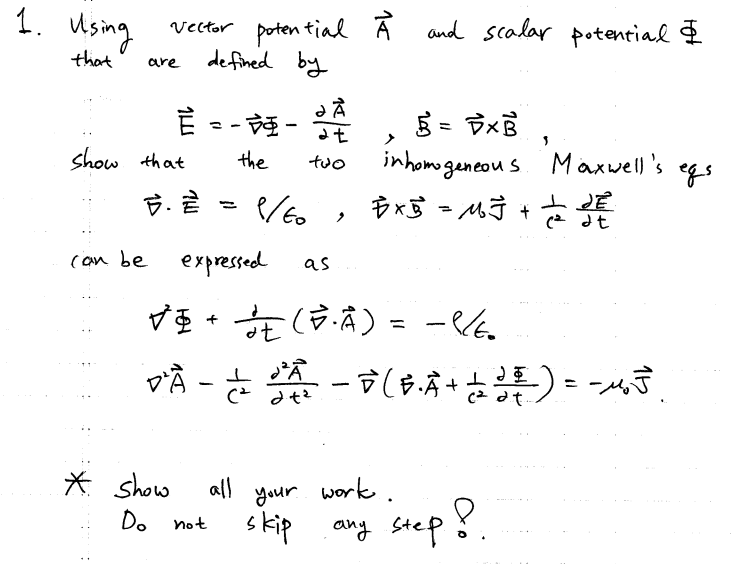 1. Using vector potential A⃗ and scalar potential Φ
that are defined by
E⃗ = -∇⃗Φ - ∂A⃗/∂t , B⃗ = ∇⃗×B⃗ ,
show that the two inhomogeneous Maxwell's eqs
∇⃗·E⃗ = ρ/ϵ₀ , ∇⃗×B⃗ = μ₀J⃗ + 1/c² ∂E⃗/∂t
can be expressed as
∇²Φ + ∂/∂t (∇⃗·A⃗) = -ρ/ϵ₀
∇²A⃗ - 1/c² ∂²A⃗/∂t² - ∇⃗(∇⃗·A⃗ + 1/c² ∂Φ/∂t) = -μ₀J⃗.
* Show all your work.
Do not skip any step!.